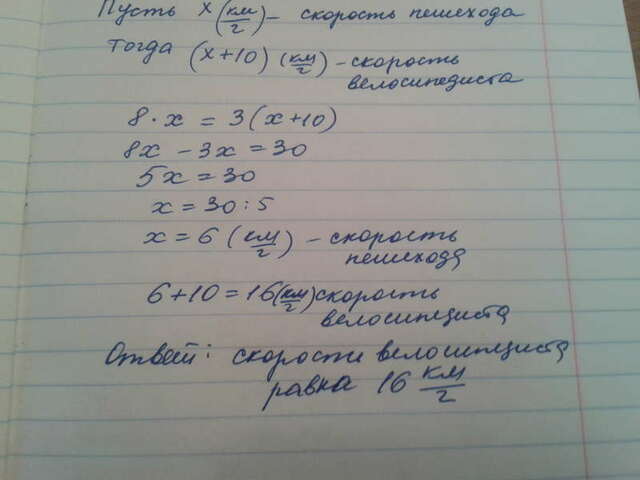 Пусть x (км/ч) – скорость пешехода
Тогда (x+10) (км/ч) – скорость
велосипедиста
8·x = 3(x+10)
8x – 3x = 30
5x = 30
x = 30:5
x = 6 (км/ч) – скорость
пешехода
6+10 = 16 (км/ч) скорость
велосипедиста
Ответ: скорости велосипедиста
равна 16 км/ч